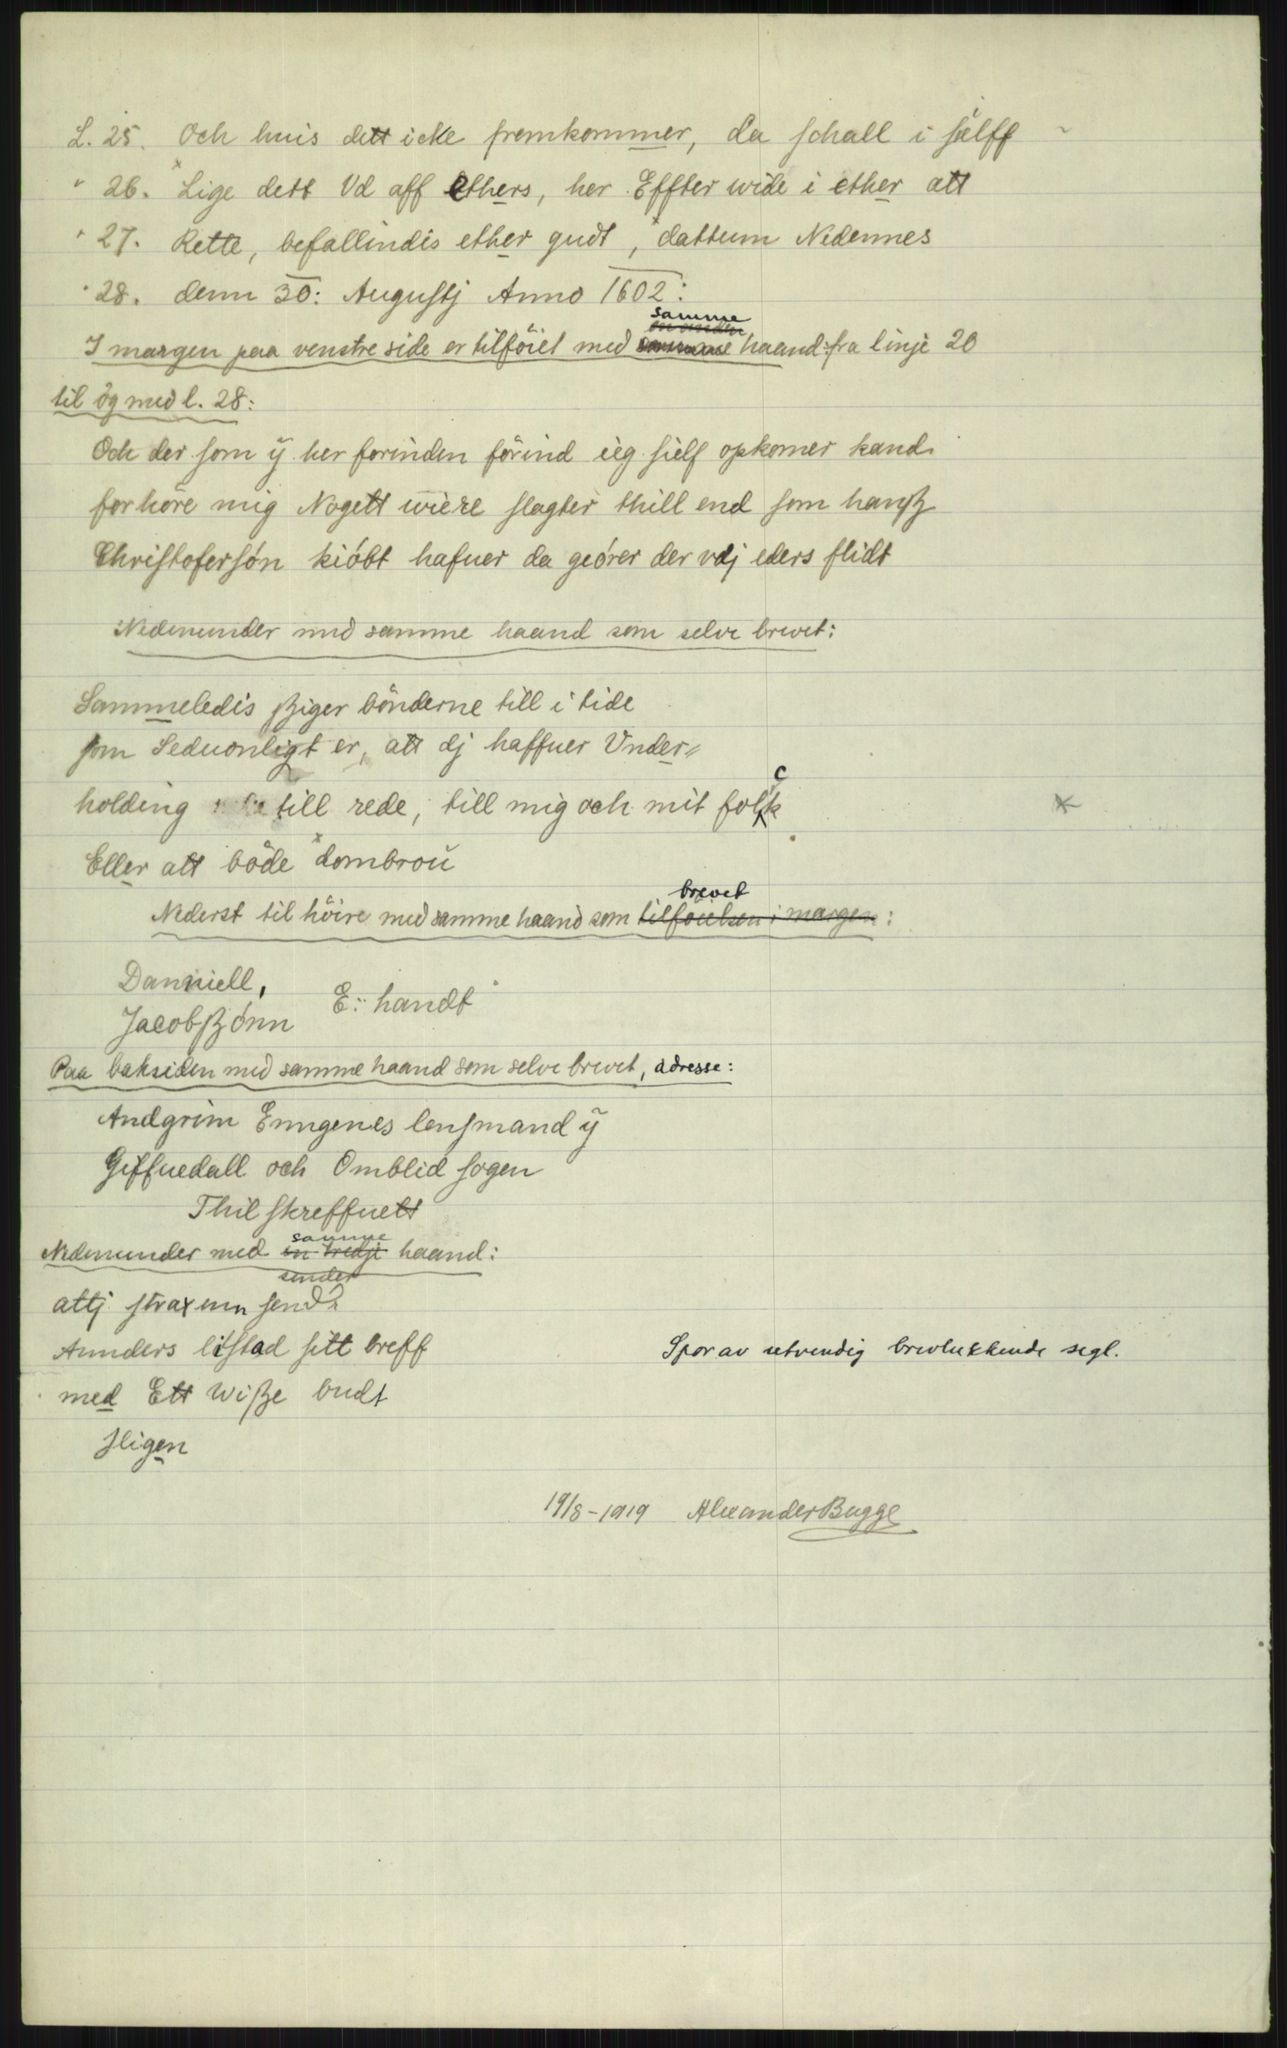 L. 25. Och huis dett icke fremkommer, da schall i sielff
" 26. Lige dett Vd aff ethers, her Effter wide i ether att
" 27. Rette, befallindis ether gudt, dattum Nedennes
" 28. denn 30: Augustj Anno 1602:
I margen paa venstre side er tilföiet med samme haand: fra linje 20
til og med l. 28:
Och der som ÿ her forinden förind ieg sielf opkomer kand
forhöre mig Nogett wiere slagter thill end som hanß
Christofersón kióbt hafuer da geórer der vdj eders flidt
Nedenunder med samme haand som selve brevet:
Sammeledis ßiger bönderne till i tide
som Seduonligt er, att dj haffuer Vnder=
holding till rede, till mig och mit folck
Eller att böde dombrou
Nederst til höire med samme haand som brevet tilföielsen i margen:
Danniell,
Jacobßónn E: handt
Paa baksiden med samme haand som selve brevet, adresse:
Andgrim Enngenes lensmand ÿ
Giffuedall och Omblid sogen
Thil skreffuett
Nedenunder med samme en tredje haand:
sender
attj strax enn send
Annders listad sitt breff
Spor av utvendig brevlukkende segl.
med Ett wiße budt
sligen
19/8-1919 Alexander Bugge